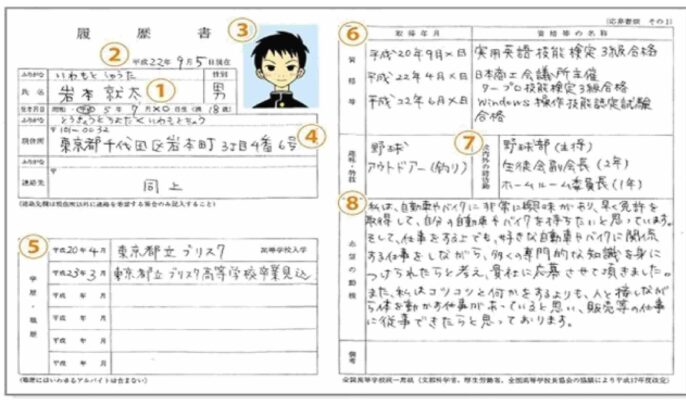 履歴書
③
② 平成22年9月5日現在
ふりがな いわもと しゅうた
性別
氏名 ① 岩本就太
男
生年月日 昭和・平成 5年9月×日生(満18歳)
ふりがな とうきょうと ちよだく いわもとちょう
〒101-0032
現住所 東京都千代田区岩本町3丁目4番6号 ④
ふりがな
〒
連絡先 同上
(連絡先欄は現住所以外に連絡を希望する場合のみ記入すること)
⑤
学歴・職歴
平成20年4月 東京都立ブリスク 高等学校入学
平成23年3月 東京都立ブリスク高等学校卒業見込
平成 年 月
平成 年 月
平成 年 月
平成 年 月
(職歴にはいわゆるアルバイトは含まない)
(応募書類 その1)
⑥ 取得年月 資格等の名称
資格等
平成20年9月×日 実用英語技能検定3級合格
平成22年4月×日 日本商工会議所主催
ワープロ技能検定3級合格
平成22年6月×日 Windows操作技能認定試験
合格
趣味・特技
野球
アウトドアー(釣り)
⑦
校内外の諸活動
野球部(主将)
生徒会副会長(2年)
ホームルーム委員長(1年)
⑧
志望の動機
私は、自動車やバイクに非常に興味があり、早く免許を
取得して、自分の自動車やバイクを持ちたいと思っています。
そして、仕事をする上でも、好きな自動車やバイクに関係
する仕事をしながら、多くの専門的な知識を身に
つけられたらと考え、貴社に応募させて頂きました。
また、私はコツコツと何かをするよりも、人と接しながら
体を動かす仕事があっていると思い、販売等の仕事
に従事できたらと思っております。
備考
全国高等学校統一用紙(文部科学省、厚生労働省、全国高等学校長協会の協議により平成17年度改定)